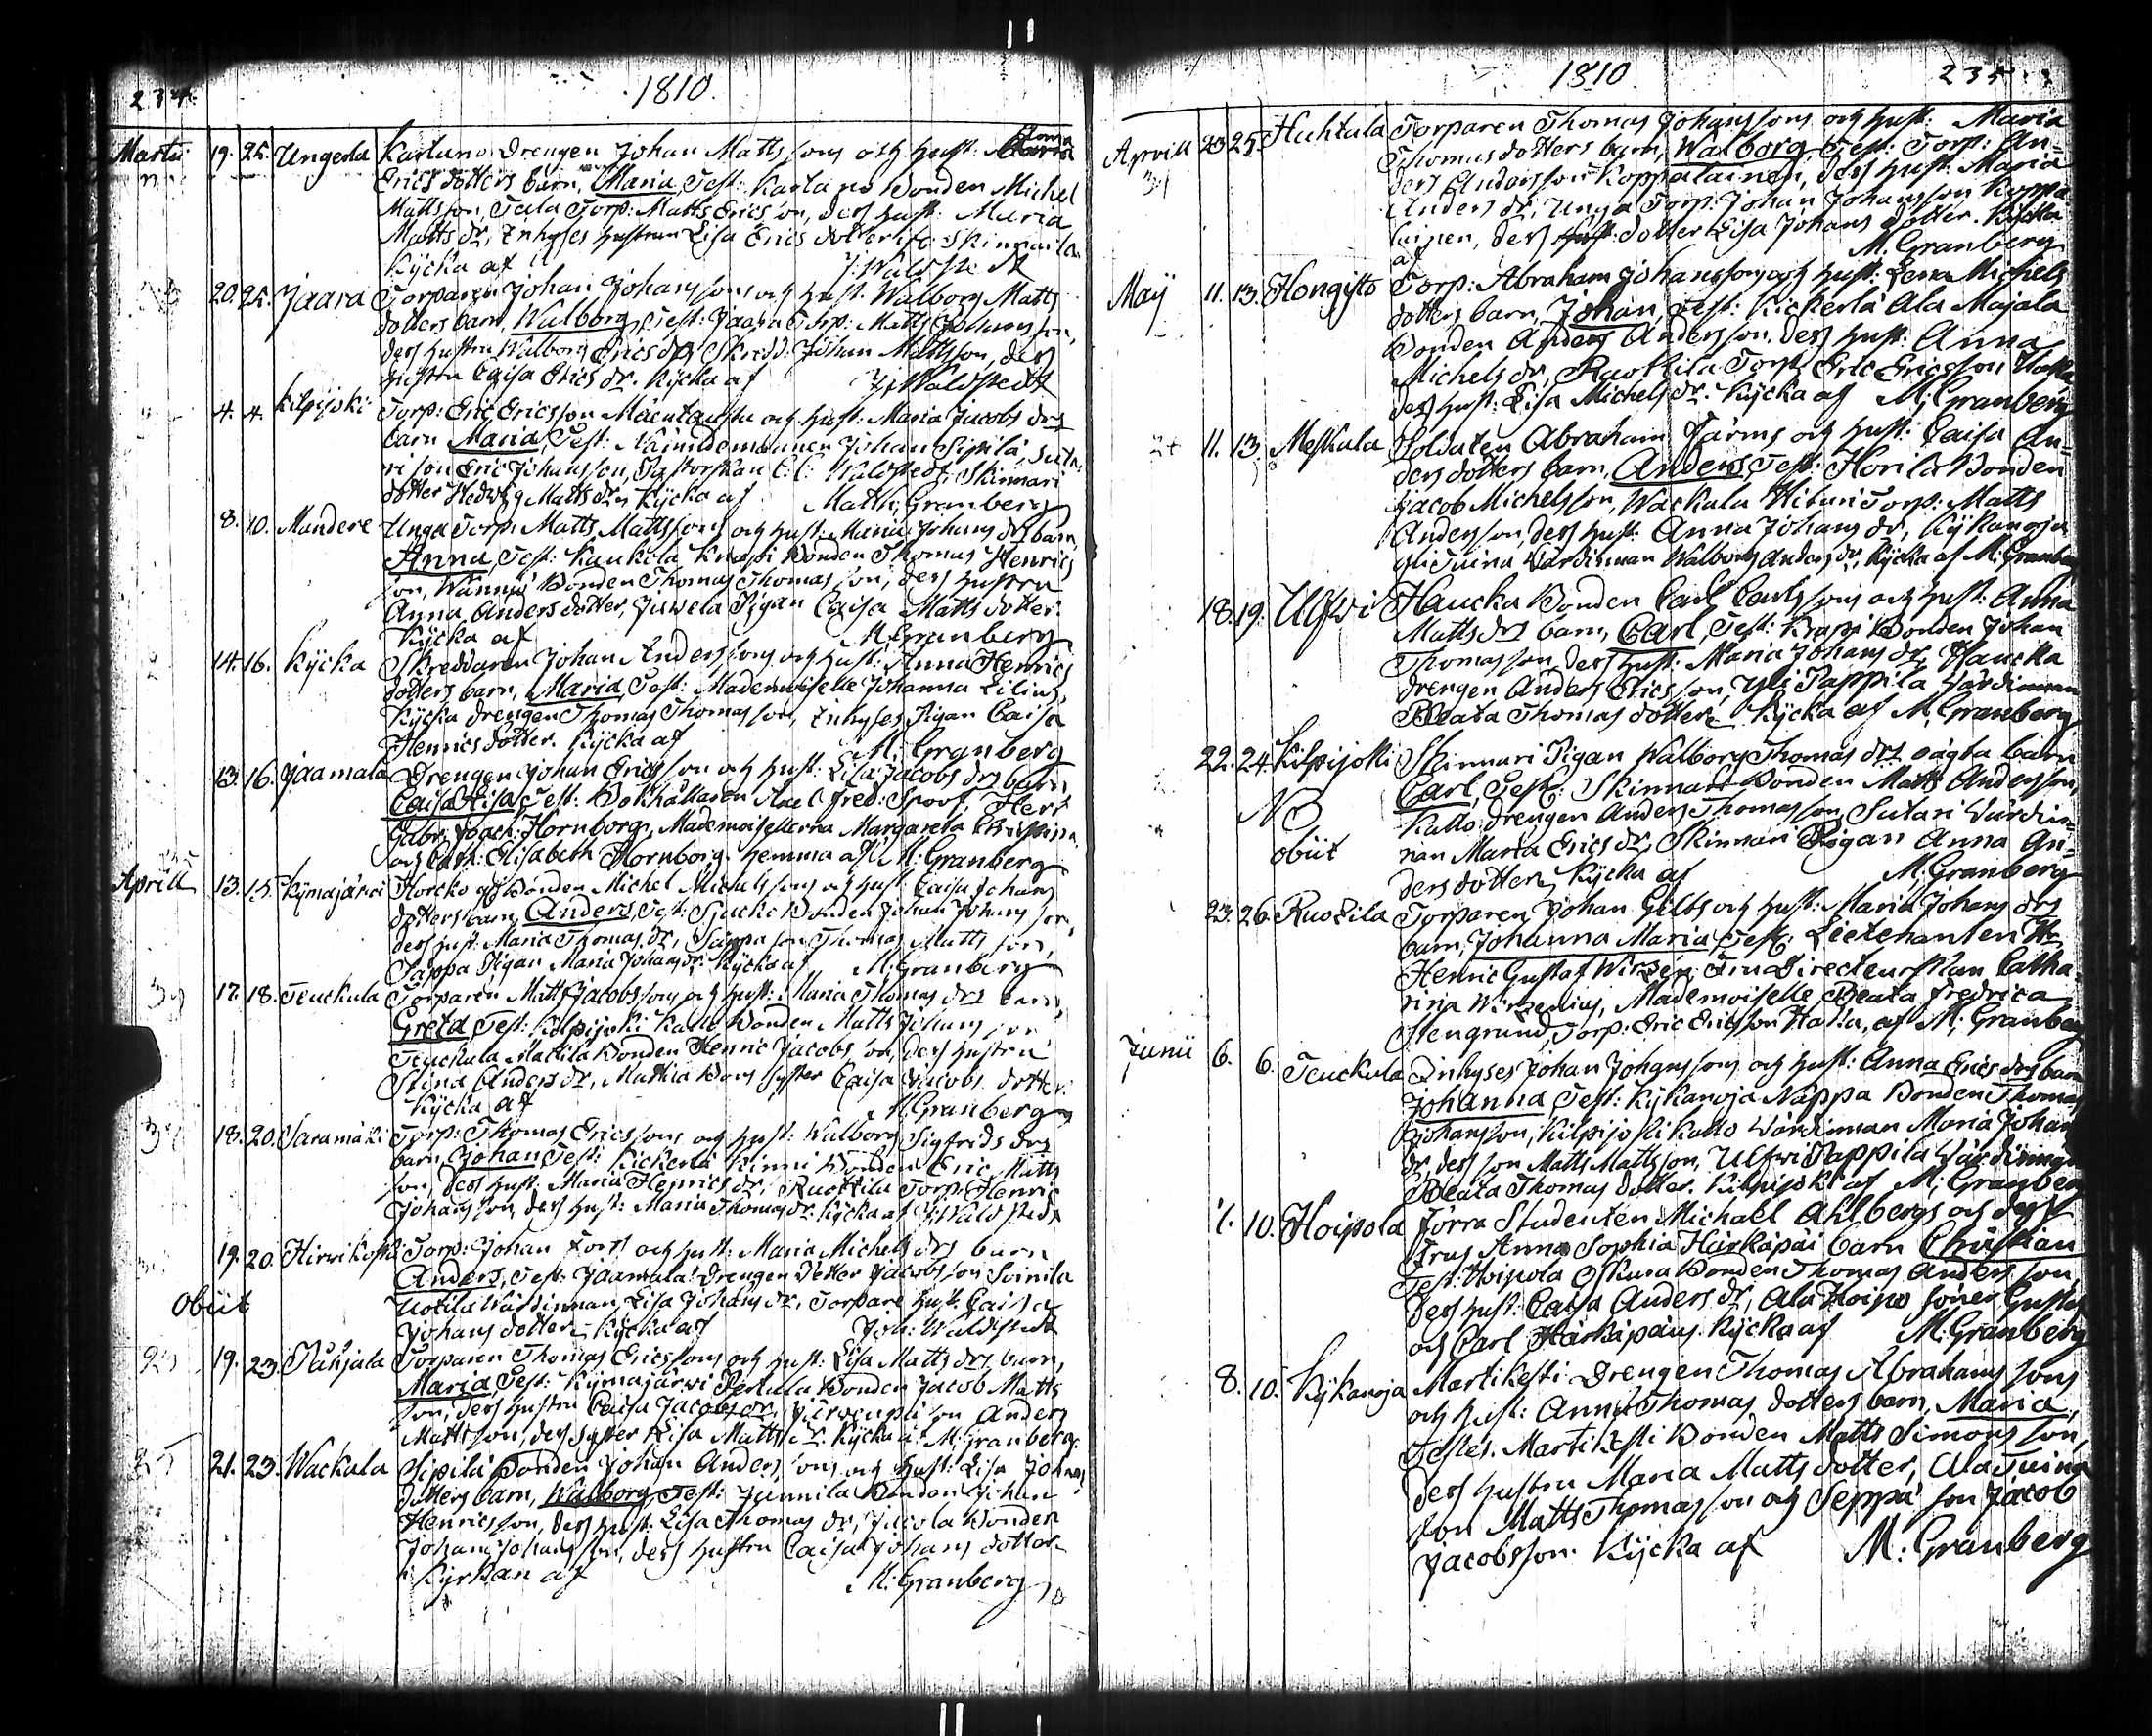 234. 1810.
Martii 19. 25. Ungerla Karluno Drengen Johan Mattssons och hust: Maria Anna
Ericsdotters barn, Maria, Test: Karluno Bonden Michel
Mattsson, Tala Torp: Matts Ericsson, dess hust: Maria
Matts dr, Inhyses hustrun Lisa Ericsdotter Skinnarila
Kÿcka af J: Waldstedt
20. 25. Jaara Torparen Johan Johanssons och hust: Walborg Matts
dotters barn, Walborg, Test: Jaara Torp: Matts Johansson,
dess hustru Walborg Ericsdr, Skredd: Johan Mattsson, dess
hustru Caisa Erics dr. Kÿcka af J: Waldstedt
4. 4. Kilpijoki Torp: Eric Ericsson och hust: Maria Jacobs drs
barn Maria, Test: Nämndemannen Johan Sipilä, Suta-
ri son Eric Johansson, Pastorskan C: C: Waldstedt, Skinnari
dotter Hedwig Mattsdr, Kÿcka af Matth: Granberg
8. 10. Mandere Unga Torp: Matts Mattssons och hust: Maria Johans drs barn,
Anna, Test: Kaukila Knapi Bonden Thomas Henrics
son, Wännijö Bonden Thomas Thomasson, dess hustru
Anna Andersdotter, Juwela Pigan Caisa Mattsdotter.
Kÿcka af M: Granberg
14. 16. Kÿcka Skreddaren Johan Anderssons och hust: Anna Henrics
dotters barn, Maria, Test: Mademoiselle Johanna Lilius,
Kÿcka drengen Thomas Thomasson, Inhyses Pigan Caisa
Henricsdotter. Kÿcka af M: Granberg
13. 16. Jaamala Drengen Johan Ericssons och hust: Lisa Jacobs drs barn,
Caisa Lisa, Test: Bokhållaren Axel Fred: Spoof, Herr
Gabr: Joach: Hornborg, Mademoisellerna Margareta
och Cath: Elisabeth Hornborg. hemma af M: Granberg
Aprill 13. 15. Kÿmajärvi Horcko Bonden Michel Michelssons och hust: Caisa Johans
dotters barn, Anders, Test: Bonden Johan Johansson,
dess hust: Maria Thomas dr, Pappa son Thomas Mattsson,
Pappa Pigan Maria Johans dr. Kÿcka af M: Granberg
17. 18. Teuckula Torparen Matts Jacobssons och hust: Maria Thomas drs barn,
Greta, Test: Kilpijoki Kallo Bonden Matts Johansson
Teuckula Mattila Bonden Henric Jacobsson, dess hustru
Stina Anders dr, Mattila Bons syster Caisa Jacobs dotter.
Kÿcka af M: Granberg
18. 20. Saramäki Torp: Thomas Ericssons och hust: Walborg Sigfrids drs
barn, Johan, Test: Kickerlä Kinni Bonden Eric Matts
son, dess hust: Maria Henrics dr, Ruottila Torp: Henric
Johansson, dess hust: Maria Thomas dr: Kÿcka af J: Waldstedt
19. 20. Hirvikoski Torp: Johan Fors och hust: Maria Michels drs barn
Anders, Test: Jaamala Drengen Petter Jacobsson Soinila
Uotila Wärdinnan Lisa Johans dr, Torpare hust: Caisa
obiit Johansdotter. Kÿcka af Joh: Waldstedt
19. 23. Pahjala Torparen Thomas Ericssons och hust: Lisa Matts drs barn,
Maria, Test: Kÿmajärwi Perttula Bonden Jacob Matts
son, dess hustru Caisa Jacobs dr, son Anders
Mattsson, dess syster Lisa Matts dr. Kÿcka af M: Granberg
21. 23. Wackala Sipilä Bonden Johan Anderssons och hust: Lisa Johans
dotters barn, Walborg, Test: Junnila Bonden Johan
Henricsson, dess hust: Lisa Thomas dr, Jacola Bonden
Johan Johansson, dess hustru Caisa Johans dotter.
i Kÿrkan af M: Granberg
1810. 235.
Aprill 23 25. Huhtala Torparen Thomas Johanssons och hust: Maria
Thomasdotters barn, Walborg, Test: Torp: An-
ders Andersson Koppalainen, dess hust: Maria
Anders dr, Unga Torp: Johan Johansson Koppa
lainen, dess dotter Lisa Johans dotter. Kÿcka
af M. Granberg
Maÿ 11. 13. Hongisto Torp: Abraham Johanssons och hust: Lena Michels
dotters barn, Johan, Test: Kickerlä Ala Majala
Bonden Anders Andersson, dess hust: Anna
Michels dr, Ruottila Torp: Eric Ericsson Hatka
dess hust: Lisa Michels dr. Kÿcka af M: Granberg
11. 13. Meskala Soldaten Abraham Järms och hust: Caisa An-
dersdotters barn, Anders, Test: Horila Bonden
Jacob Michelsson, Wackala Hituri Torp: Matts
Andersson, dess hust: Anna Johans dr, Kÿkanoja
Yli Tuina Wärdinnan Walborg Anders dr, Kÿcka af M: Granberg
18. 19. Ulfwi Haucka Bonden Carl Carlssons och hust: Anna
Matts drs barn, Carl, Test: Krapi Bonden Johan
Thomasson, dess hust: Maria Johans dr, Haucka
drengen Anders Ericsson, Yli Pappila Wärdinnan
Beata Thomas dotter. Kÿcka af M: Granberg
22. 24. Kilpijoki Skinnari Pigan Walborg Thomas drs oägta barn
Carl, Test: Skinnari Bonden Matts Andersson,
NB Kallo drengen Anders Thomasson, Sutari Wärdin-
obiit nan Maria Erics dr, Skinnari Pigan Anna An-
dersdotter, Kÿcka af M: Granberg
23. 26. Ruottila Torparen Johan Gilts och hust: Maria Johans drs
barn, Johanna Maria, Test: Lieutenanten Hr
Henric Gustaf Wirzén, Fru Directeurskan Catha-
rina Wirzenius, Mademoiselle Beata Fredrica
Stengrund, Torp: Eric Ericsson Hatka, af M: Granberg
Junii 6. 6. Teuckula Inhyses Johan Johanssons och hust: Anna Erics drs barn
Johanna, Test: Kÿkanoja Näppa Bonden Thomas
Johansson, Kilpijoki Kallo Wärdinnan Maria Johans
dr, dess son Matts Mattsson, Ulfwi Pappila Wärdinnan
Beata Thomas dotter. Kilpijoki af M: Granberg
7. 10. Hoipola Förra Studenten Michael Ahlbergs och dess
Frus Anna Sophia Härkäpäi barn Christian
Test: Hoipola Bonden Thomas Andersson,
dess hust: Caisa Anders dr, Ala Hoipo söner Gustaf
och Carl Härkäpäus. Kÿcka af M: Granberg
8. 10. Kÿkanoja Martikesti Drengen Thomas Abrahamssons
och hust: Anna Thomas dotters barn, Maria,
Testes. Martikesti Bonden Matts Simonsson,
dess hustru Maria Matts dotter, Ala Tuina
son Matts Thomasson och Seppä son Jacob
Jacobsson. Kÿcka af M: Granberg